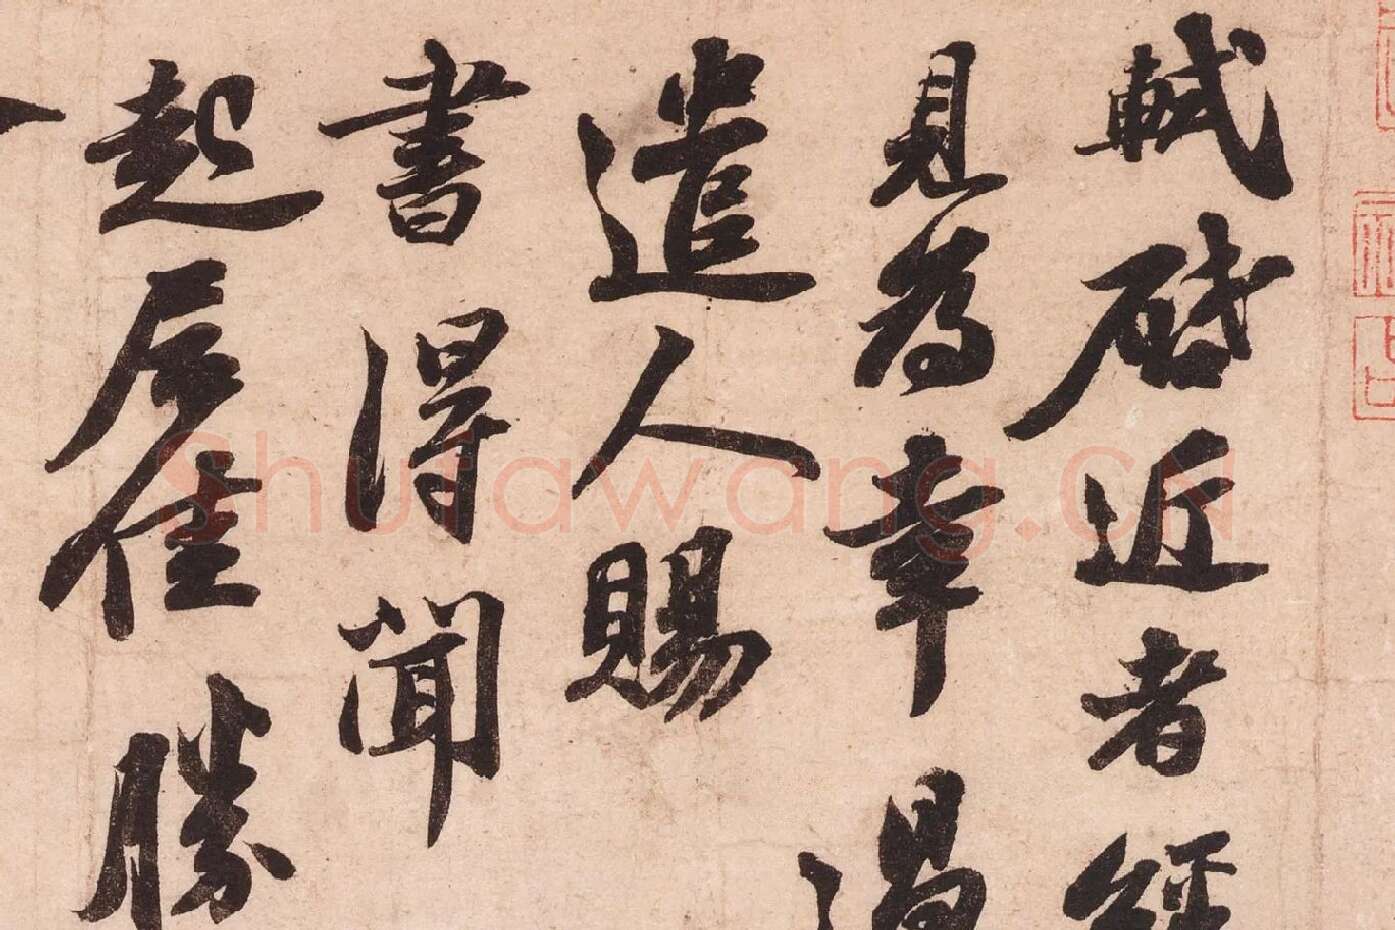 軾啓近者經
見為幸過
遣人賜
書得聞
起居佳勝
Shufawang.CN